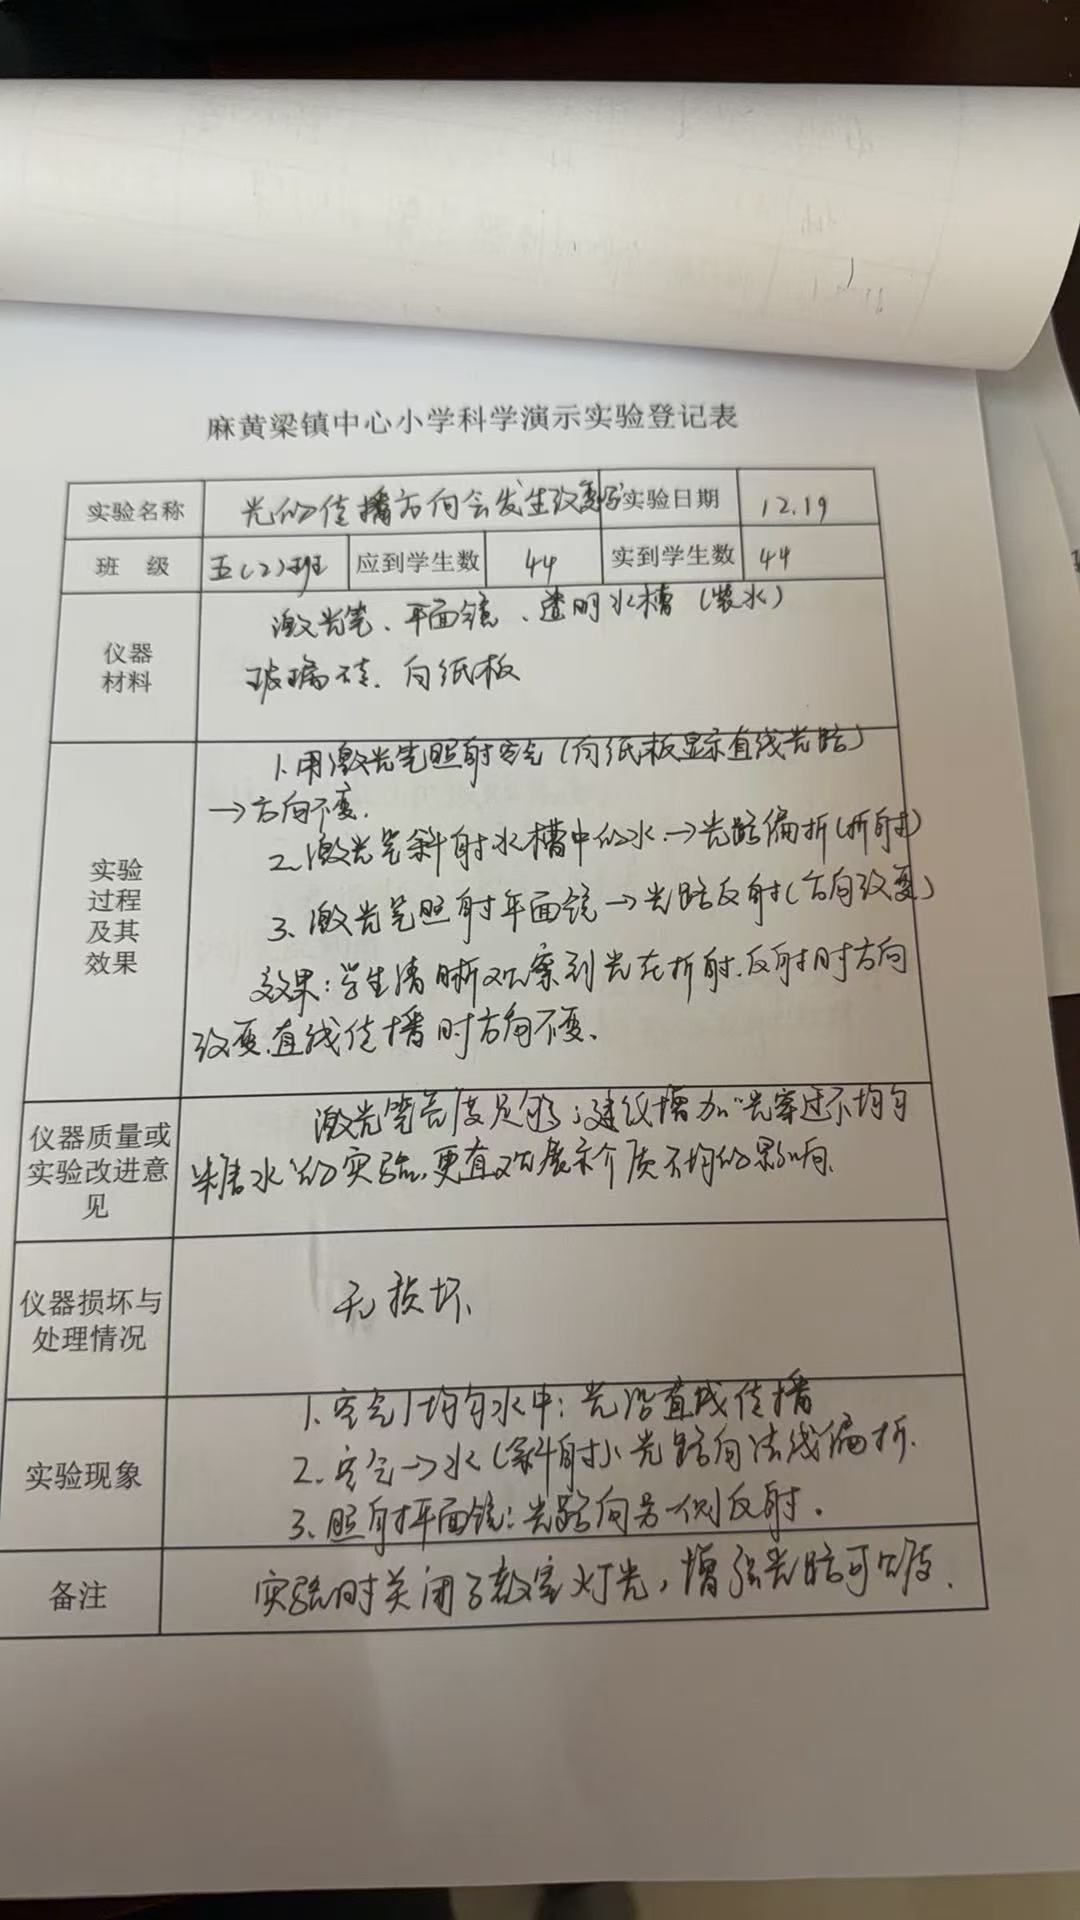 麻黄梁镇中心小学科学演示实验登记表
实验名称 光的传播方向会发生改变吗 实验日期 12.19
班 级 五(2)班 应到学生数 44 实到学生数 44
仪器材料
激光笔、平面镜、透明水槽(装水)
玻璃砖、白纸板
实验过程及其效果
1.用激光笔照射空气(白纸板显示直线光路)
→方向不变.
2.激光笔斜射水槽中的水→光路偏折(折射)
3、激光笔照射平面镜→光路反射(方向改变)
效果:学生清晰观察到光在折射.反射时方向
改变.直线传播时方向不变、
仪器质量或实验改进意见
激光笔亮度足够;建纸增加"光穿过不均匀
糖水"的实验,更直观展示介质不均的影响.
仪器损坏与处理情况
无损坏、
实验现象
1.空气/均匀水中:光沿直线传播
2.空气→水(斜射):光路向法线偏折.
3、照射平面镜:光路向另一侧反射.
备注
实验时关闭了教室灯光,增强光路可见度.